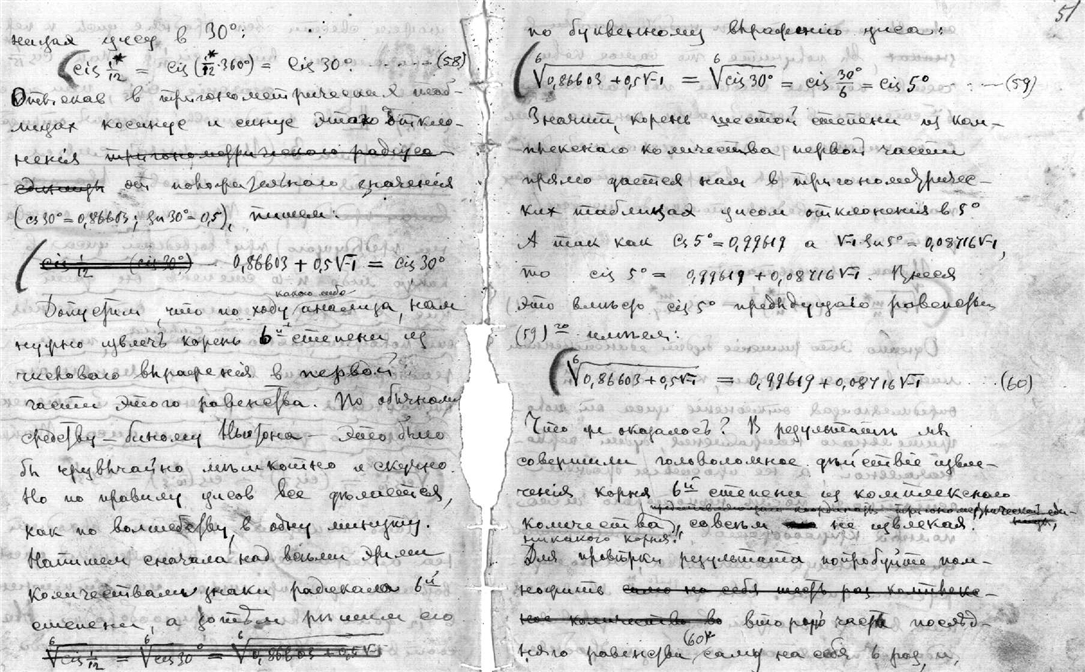 ницая цисоу в 30°:
cis 1/12 = cis (1/12 · 360°) = cis 30° . . . . . . . (58)
Отыскав в тригонометрических таб-
лицах косинус и синус этого откло-
нения тригонометрического радиуса
единицы от положительного значения
(cs 30° = 0,86603; sn 30° = 0,5), пишем:
cis 1/12 (cis 30°) 0,86603 + 0,5√-1 = cis 30°
какого либо
Допустим, что по ходу анализа, нам
нужно извлечь корень 6й степени из
числового выраженія в первой
части этого равенства. По обычному
средству – биному Ньютона – это было
бы чрезвычайно мѣшкотно и скучно.
Но по правилу цисов все дѣлается,
как по волшебству, в одну минуту.
Напишем сначала над всѣми этими
количествами знаки радикала 6й
степени, а затѣм рѣшим его
⁶√cis 1/12 = ⁶√cis 30° = ⁶√0,86603 + 0,5√-1
51
по буквенному выраженію циса:
⁶√0,86603 + 0,5√-1 = ⁶√cis 30° = cis 30°/6 = cis 5° . . . (59)
Значит, корень шестой степени из ком-
плекснаго количества первой части
прямо дается нам в тригонометричес-
ких таблицах цисом отклоненія в 5°
А так как cs 5° = 0,99619 а √-1 sn 5° = 0,08716√-1,
то cis 5° = 0,99619 + 0,08716√-1. Внеся
это вмѣсто cis 5° предыдущаго равенства
(59)го имѣем:
⁶√0,86603 + 0,5√-1 = 0,99619 + 0,08716√-1 . . . (60)
Что же оказалось? В результатѣ мы
совершили головоломное дѣйствіе извле-
ченія корня 6й степени из комплекснаго
количества, совсѣм не извлекая
никакого корня!
Для провѣрки результата попробуйте пом-
ножить само на себя шесть раз комплекс-
ное количество во вторую часть послѣд-
(60)
няго равенства саму на себя 6 раз и